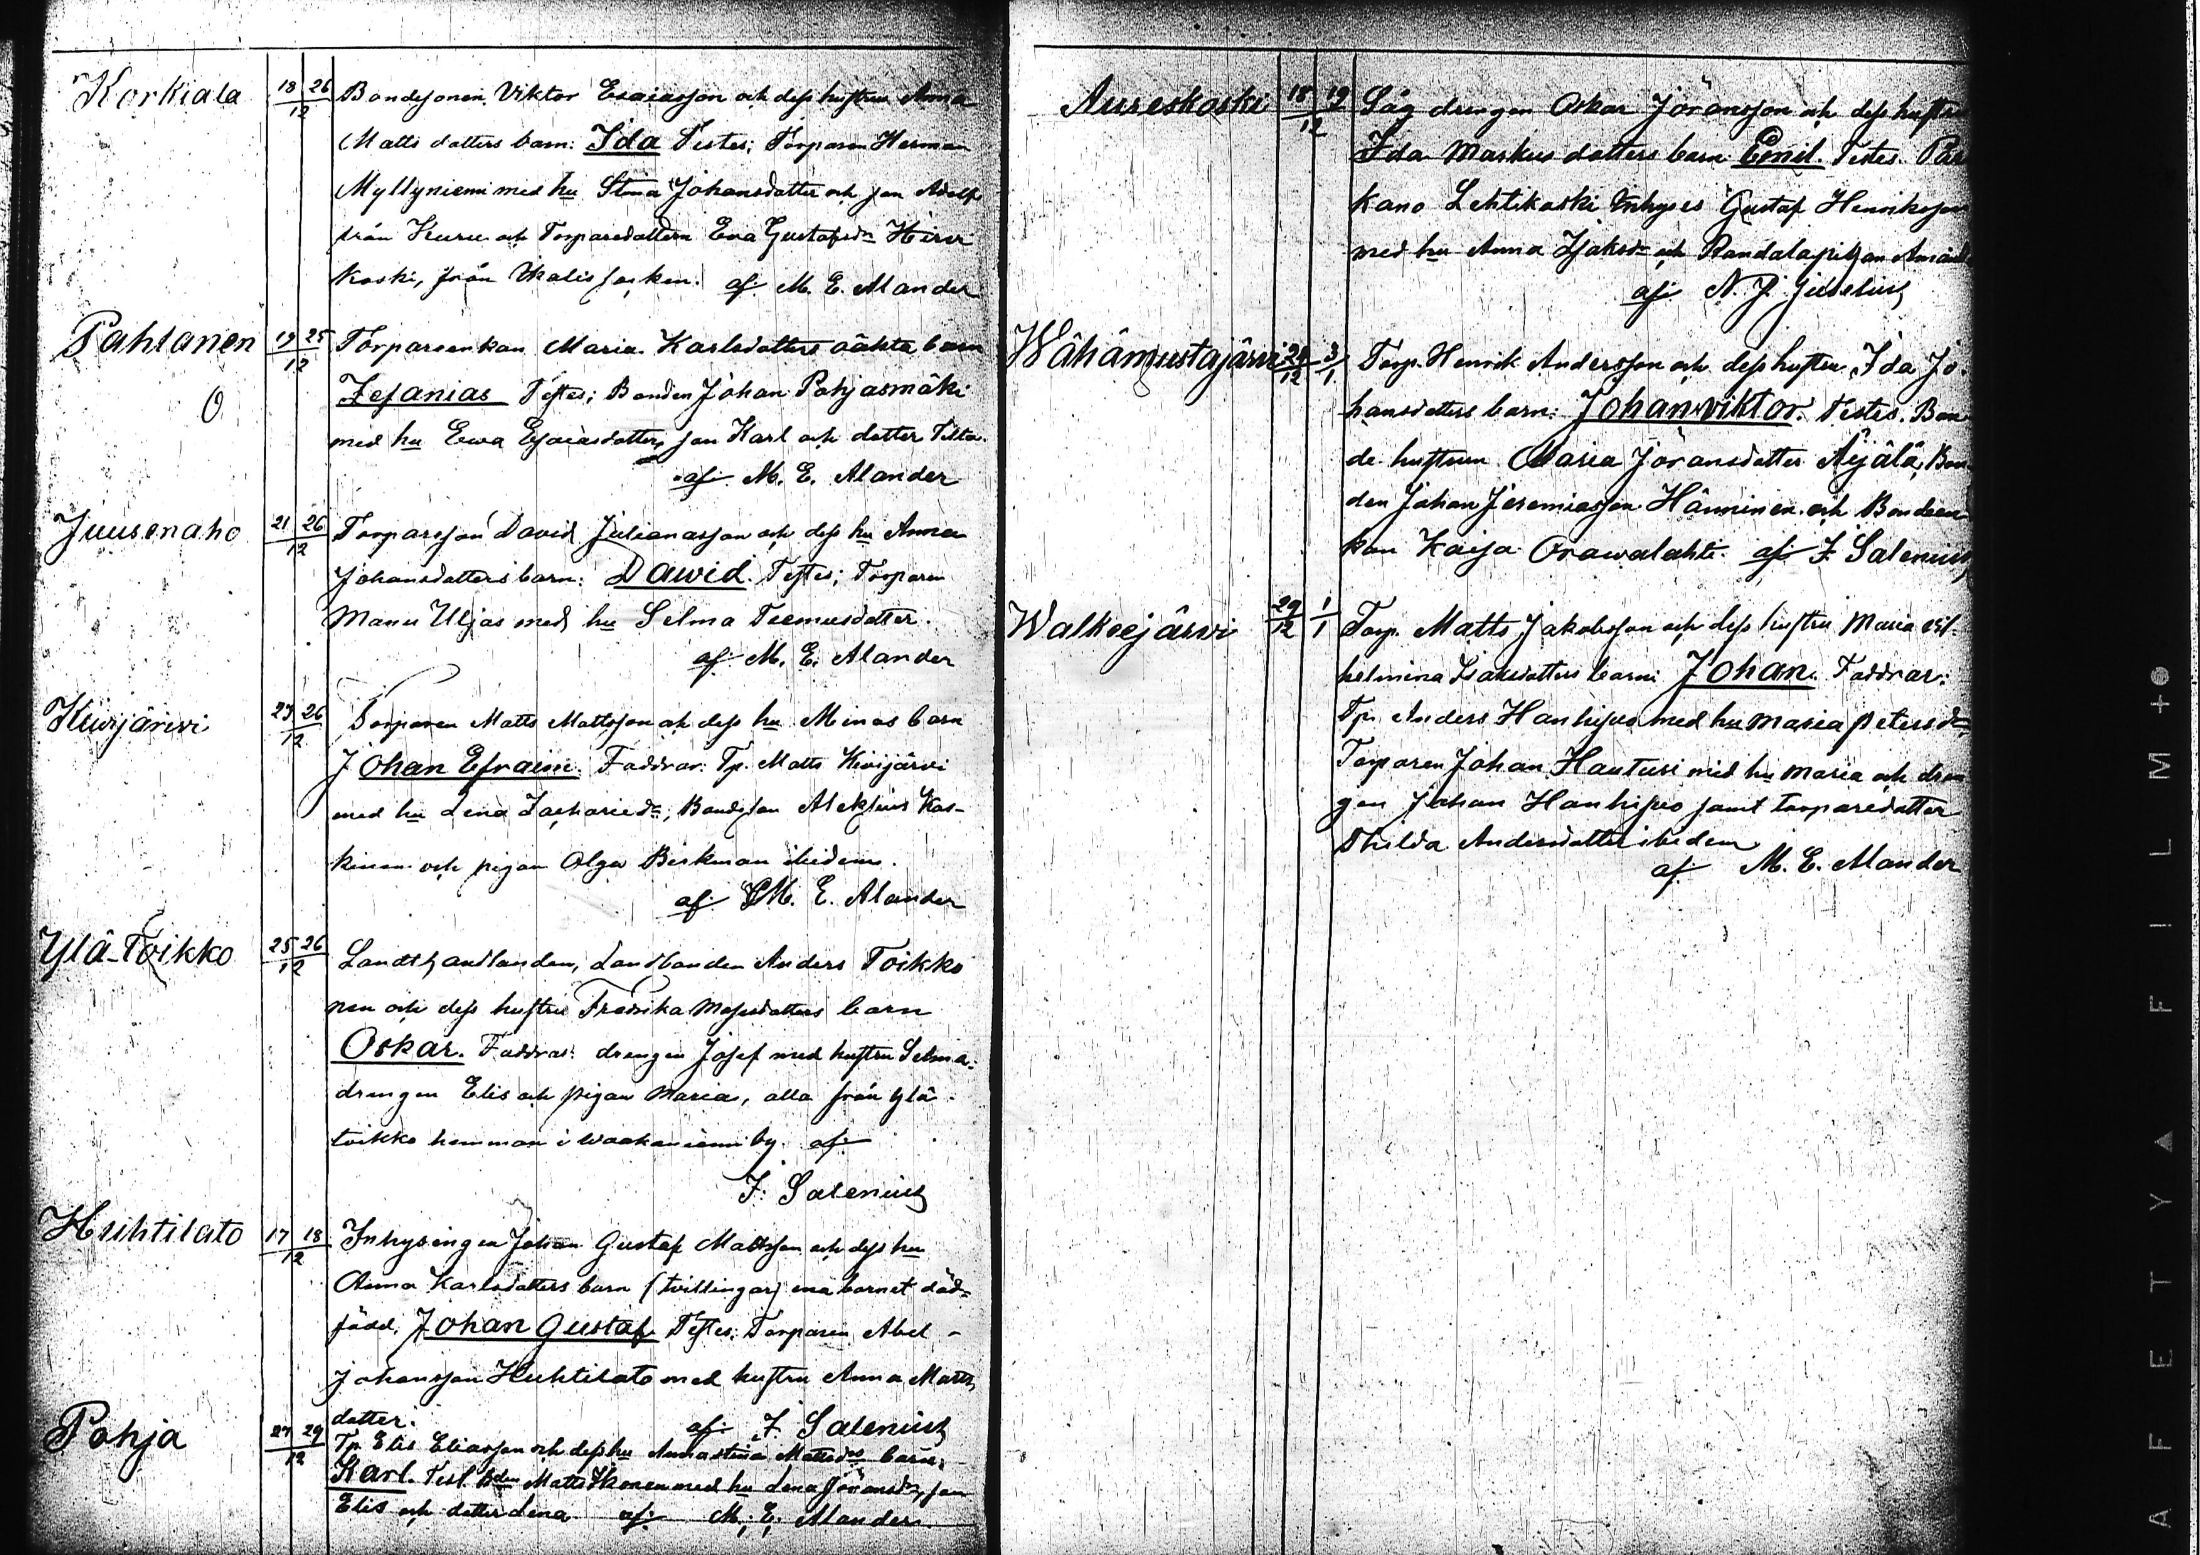 Korkiala 18 26/12 Bondesonen Viktor Esaiasson och dess hustrus Anna
Matts dotters barn: Ida Testes; Torparen Herman
Myllyniemi med hu Stina Johansdotter och son Adolf
från Kuru och Torparedottern Eva Gustafsdr Hirvi
koski, från Ikalis socken. af M. E. Alander
Pahtanen 19 25/12 Torpareenkan Maria Karlsdotters oäkta barn
O Zefanias Testes; Bonden Johan Pohjasmäki
med hu Ewa Esaiasdotter, son Karl och dotter Tilta.
af M. E. Alander
Juusenaho 21 26/12 Torparson David Julianasson och dess hu Anna
Johansdotters barn: Dawid. Testes; Torparen
Manu Uljas med hu Selma Teemusdotter.
af M. E. Alander
Kiwijärwi 23 26/12 Torparen Matts Mattsson och dess hu Minas barn
Johan Efraim. Faddrar: Tp. Matts Kivijärvi
med hu Lena Zachariedr, Bondeson Aleksius Kos-
kinen och pigan Olga Birkman ibidem.
af M. E. Alander
Ylä-Toikko 25 26/12 Landthandlanden, Landbonden Anders Toikko
nen och dess hustru Fredrika Mosesdotters barn
Oskar. Faddrar: drengen Josef med hustru Selma:
drengen Elis och pigan Maria, alla från Ylä-
toikko hemman i Waakaniemi by. af
F. Salenius
Huhtilato 17 18/12 Inhysingen Johan Gustaf Mattsson och dess hu
Anna Karlsdotters barn (tvillingar) ena barnet död-
född. Johan Gustaf Testes: Torparen Abel
Johansson Huhtilato med hustru Anna Matts
dotter. af F. Salenius
Pohja 27 29/12 Tp. Elis Eliasson och dess hu Annastina Mattsdrs barn:
Karl. Test. Bden Matts Ikonen med hu Lena Jöransdr, son
Elis och dotter Lena af M. E. Alander
Aureskoski 18 19/12 Såg drengen Oskar Jöransson och dess hustru
Ida Markus dotters barn Emil. Testes. Par
kano Lehtikoski Inhyses Gustaf Henriksson
med hu Anna Isaksdr och Randalapigan Amanda
af N. J. Juselius
Wähämustajärwi 24/12 3/1 Torp. Henrik Andersson och dess hustru Ida Jo-
hansdotters barn: Johan Viktor. Testes. Bon
de hustrun Maria Jöransdotter Äijälä, Bon
den Johan Jeremiasson Hänninen och Bondeen
kan Kaija Orawalahti. af F. Salenius
Walkeejärwi 29/12 1/1 Torp. Matts Jakobsson och dess hustru Maria Vil-
helmina Isaksdotters barn: Johan. Faddrar:
Tp. Anders Hanhijuo med hu Maria Petersdr
Torparen Johan Hauturi med hu Maria och dren
gen Johan Hanhijuo samt torparedotter
Thilda Andersdotter ibidem
af M. E. Alander
SAFETY ▲ FILM